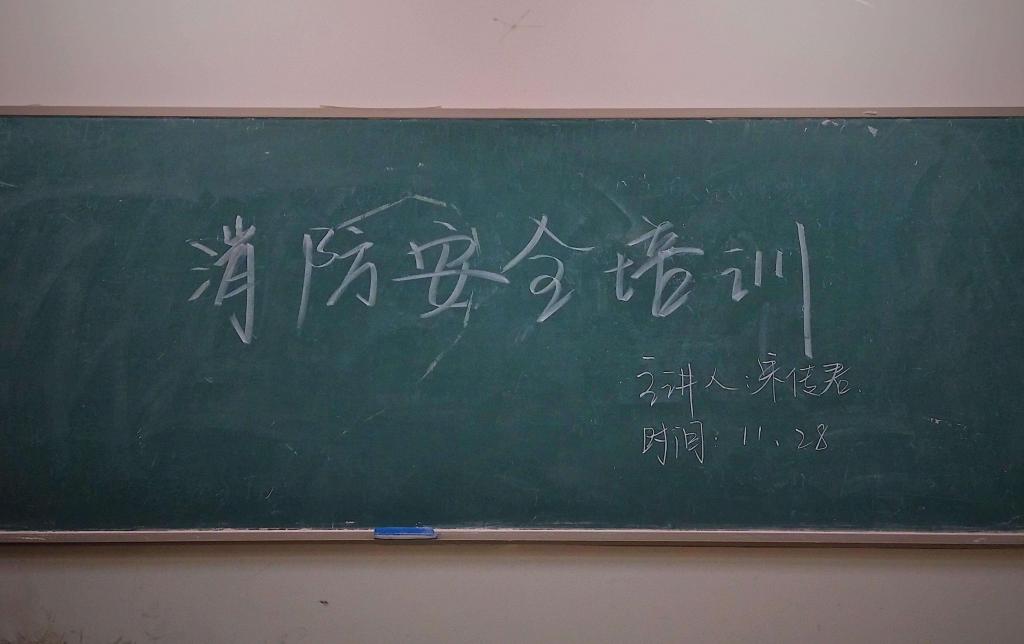 消防安全培训
主讲人:宋传君
时间: 11、28